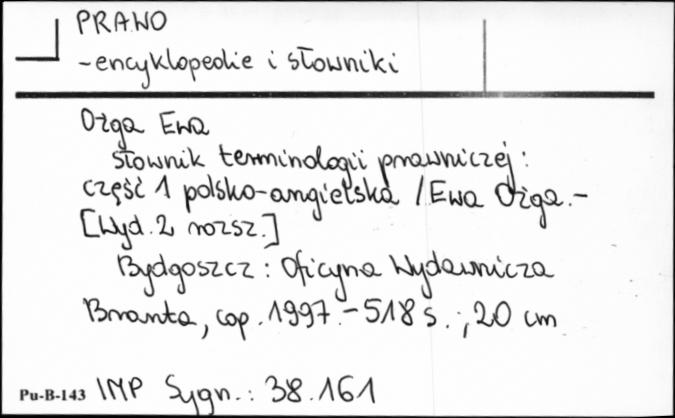 PRAWO
-encyklopedie i słowniki
Ożga Ewa
słownik terminologii prawniczej :
część 1 polsko-angielska / Ewa Ożga.-
[Wyd. 2 rozsz.]
Bydgoszcz : Oficyna Wydawnicza
Branta, cop. 1997.- 518 s. ; 20 cm
Pu-B-143 IMP Sygn.: 38.161